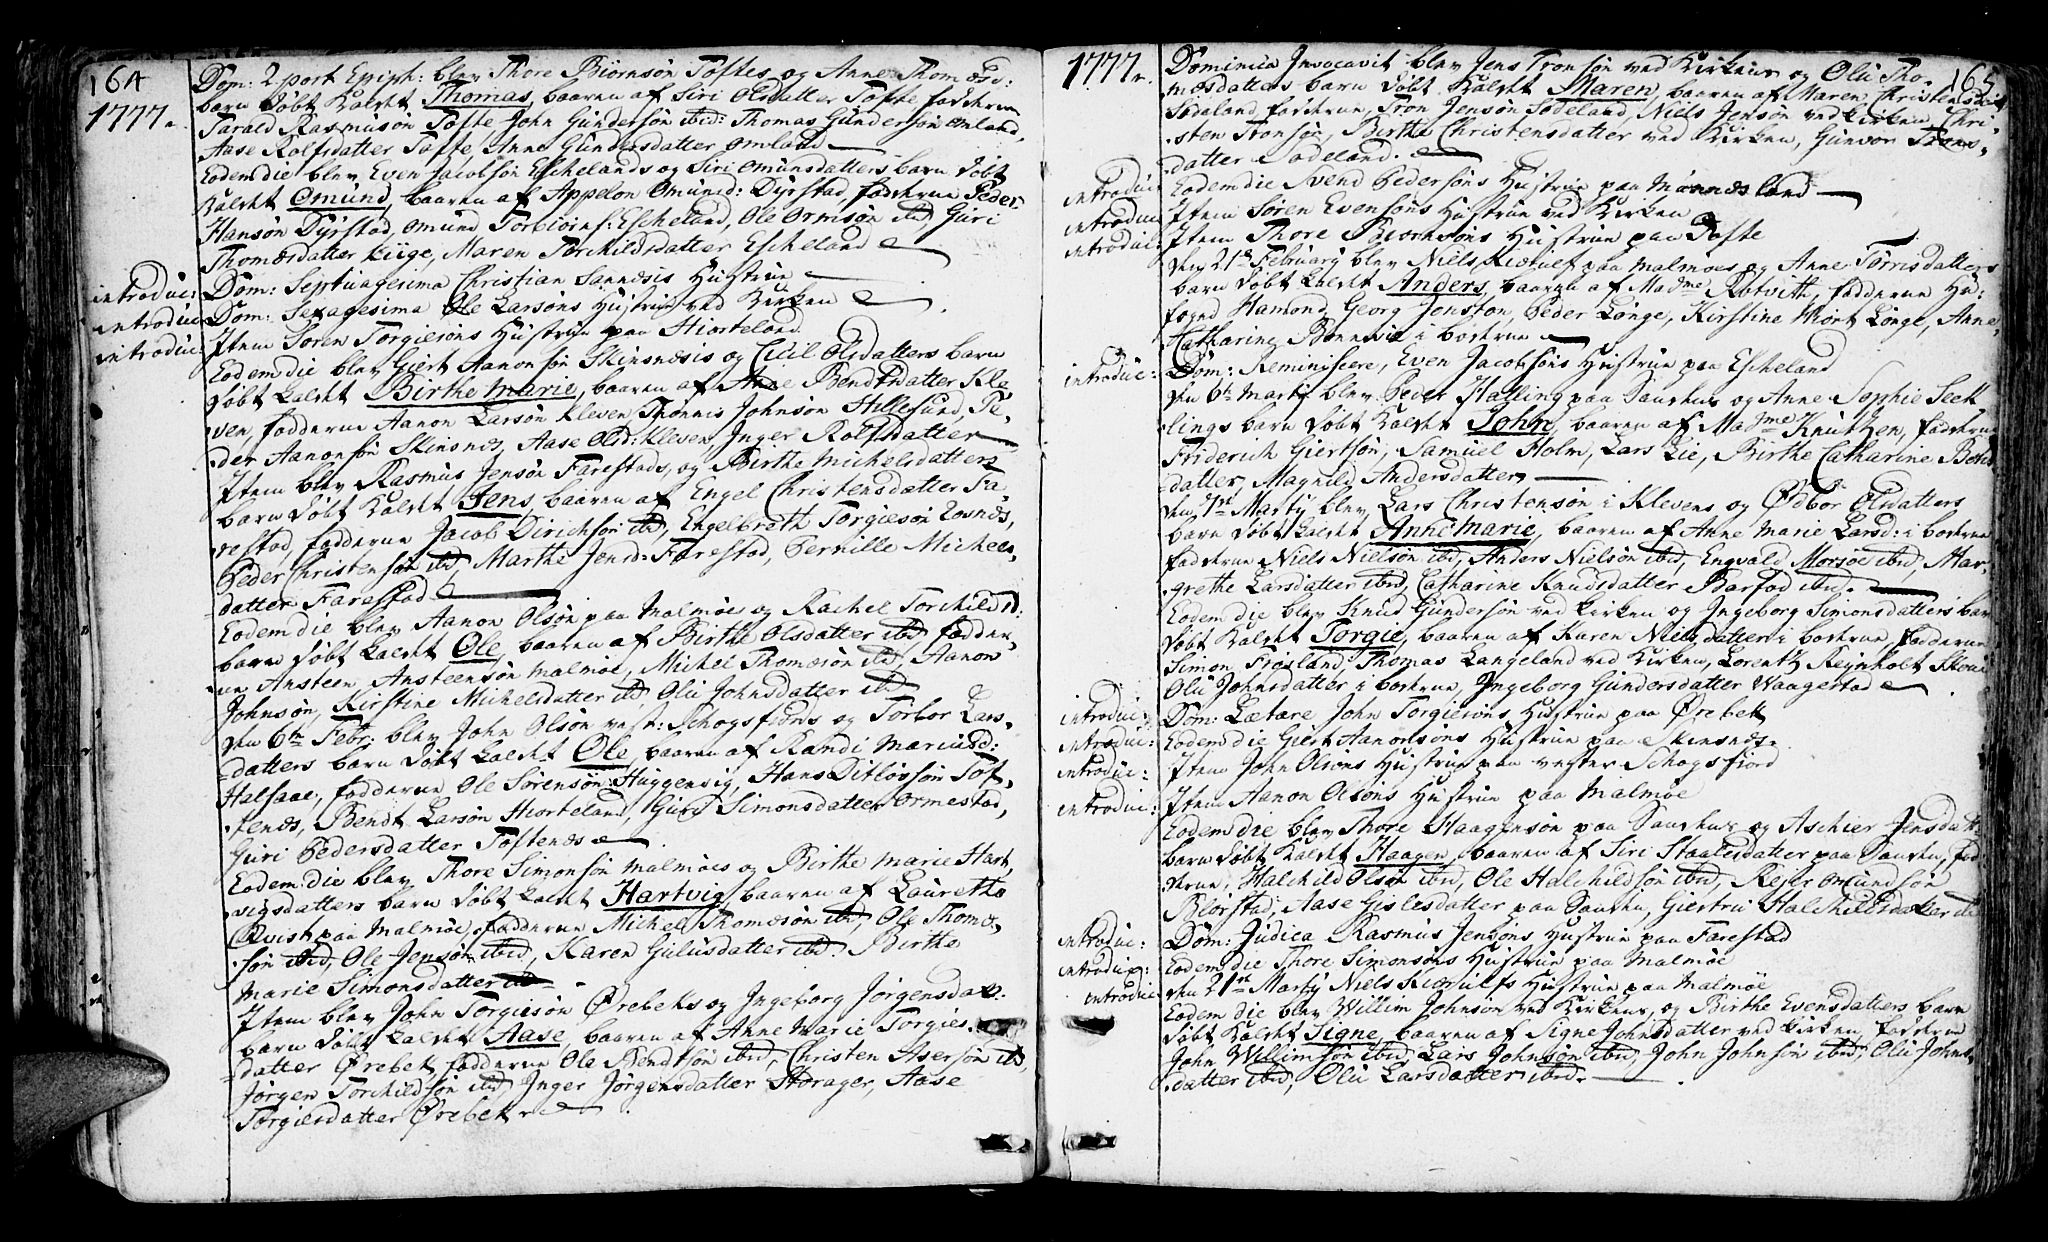 164
1777.
Dom: 2 post Epiph: blev Thore Biørnsøn Toftes og Anne Thomæsd:
barn døbt kaldet Thomas, baaren af Siri Olsdatter Tofte fadderne
Tarald Rasmusøn Tofte John Gundersøn ibid: Thomas Gundersøn Omland,
Aase Rolfsdatter Tofte Anne Gundersdatter Omland
Eodem die blev Even Jacobsøn Eschelands og Siri Omunsdatters barn døbt
kaldet Omund, baaren af Appelon Omund: Dyrstad, fadderne Peder
Hansøn Dyrstad, Omund Torbiøins: Escheland, Ole Ormsøn ibid, Guri
Thomæsdatter Kige, Maren Torchildsdatter Escheland
introduc: Dom: Septuagesima Christian Sannæsis Hustrue
introduc: Dom: Sexagesima Ole Larsøns Hustrue ved Kirken
introduc: Item Søren Torgiersøns Hustrue paa Hiorteland
Eodem die blev Giert Aanonsøn Skinsnæsis og Cicil Olsdatters barn
døbt kaldet Birthe Marie, baaren af Anne Bendtsdatter Kle,
ven, fadderne Aanon Larsøn Kleven Thønnis Johnsøn Hillesund, Pe,
der Aanonsøn Skinsnæs, Aase Olsd: Kleven Inger Rolfsdatter
Item blev Rasmus Jensøn Farestads, og Birthe Michelsdatters
barn døbt kaldet Jens, baaren af Engel Christensdatter Fa,
restad, fadderne Jacob Dirichsøn ibid, Engelbrath Torgiesøn Eosnæs,
Peder Christensøn ibid, Marthe Jensd: Farestad, Pernille Michels,
datter Farestad
Eodem die blev Aanon Olsøn paa Malmøe og Rachel Torchildsd:
barn døbt kaldet Ole, baaren af Birthe Olsdatter ibid, fadder,
ne Ansteen Ansteensøn Malmøe, Michel Thomæsøn ibid, Aanon
Johnsøn, Kirstine Michelsdatter ibid, Olu Johnsdatter ibid
den 6te Febr: blev John Olsøn vest: Schogsfiords og Torbor Lars,
datters barn døbt kaldet Ole, baaren af Randi Marcusd:
Halsaae, fadderne Ole Sørensøn Huggenvig, Hans Ditløvsøn Tof,
tenæs, Bendt Larsøn Hiorteland, Guri Simonsdatter Ormestad,
Guri Pedersdatter Toftenæs
Eodem die blev Thore Simonsøn Malmøes og Birthe Marie Hart,
vigsdatters barn døbt kaldet Hartvig, baaren af Laurethe
Qvist paa Malmøe, fadderne Michel Thomæsøn ibid, Ole Thomæ,
søn ibid, Ole Jensøn ibid, Karen Gulusdatter ibid. Birthe
Marie Simonsdatter ibid.
Item blev John Torgiesøn Ørebeks og Ingeborg Jørgensdat:
barn døbt kaldet Aase, baaren af Anne Marie Torgies,
datter Ørebek, fadderne Ole Bendtsøn ibid, Christen Asersøn ibid,
Jørgen Torchildsøn ibid, Inger Jørgensdatter Storager, Aase
Torgiesdatter Ørebek
1777.
165
Dominica Invocavit blev Jens Tronsøn ved Kirken og Olu Tho,
mæsdatters barn døbt kaldet Maren, baaren af Maren Christensdat:
Sodeland, fadderne, Tron Jensøn Sodeland, Niels Jensøn ved Kirken, Chri,
sten Tronsøn, Birthe Christensdatter ved Kirken, Gunvor Trons,
datter Sodeland.
introduc: Eodem die Svend Pedersøns Hustrue paa Monnæsland
introduc: Item Søren Evensøns Hustrue ved Kirken
introduc: Item Thore Biørnsøns Hustrue paa Tofte
den 21de February blev Niels paa Malmøes og Anne Torrisdatters
barn døbt kaldet Anders, baaren af Madme Rotvitt, fadderne Hr:
fogd Hamond, Georg Jonston, Peder Longe, Kirstine Hiort Longe, Anne
Catharine Bonnevie i boderne
introduc: Dom: Reminiscere, Even Jacobsøns Hustrue paa Escheland
den 6te Martij blev Peder Halling paa og Anne Sophie Seek
lings barn døbt kaldet John, baaren af Madme Knutzen, fadderne
Friderich Giertsøn, Samuel Holm, Lars Lie, Birthe Catharine
datter, Magnild Andersdatter,
den 7de Marty blev Lars Christensøn i Klevens og Ødbor Olsdatters
barn døbt kaldet Anne Marie, baaren af Anne Marie Larsd: i boderne
fadderne Niels Nielsøn ibid, Anders Nielsøn ibid, Engvald Morsøe ibid, Mar,
grethe Larsdatter ibid, Catharine Knudsdatter Barfod ibid.
Eodem die blev Knud Gundersøn ved Kirken og Ingeborg Simonsdatters barn
døbt kaldet Torgie, baaren af Karen Nielsdatter i boderne, fadderne
Simon Frøsland, Thomas Langeland ved Kirken, Lorentz Reinholt
Olu Johnsdatter i boderne, Ingeborg Gundersdatter Waagestad
introduc: Dom: Lætare John Torgiersøns Hustrue paa Ørebek
introduc: Eodem die Giert Aanonsøns Hustrue paa Skinsnæs.
introduc: Item John Olsøns Hustrue paa vester Schogsfiord
introduc: Item Aanon Olsøns Hustrue paa Malmøe
Eodem die blev Thore Haagensøn paa og Aschier Jensdatt:
barn døbt kaldet Haagen, baaren af Siri Staalesdatter paa fad,
derne, Halchild Olsøn ibid, Ole Halchildsøn ibid, Rejer Omundsøn
Blørstad, Aase Gislesdatter paa Giertru Halchildsdatter ibid
introduc: Dom: Judica Rasmus Jensøns Hustrue paa Farestad
introduc: Eodem die Thore Simonsøns Hustrue paa Malmøe
introduc: den 21de Marty Niels Hustrue paa Malmøe
Eodem die blev Willim Johnsøn ved Kirkens, og Birthe Evensdatters barn
døbt kaldet Signe, baaren af Signe Johnsdatter ved Kirken, fadderne
John Willimsøn ibid, Lars Johnsøn ibid, John Johnsøn ibid, Olu Johns,
datter ibid, Olu Larsdatter ibid.